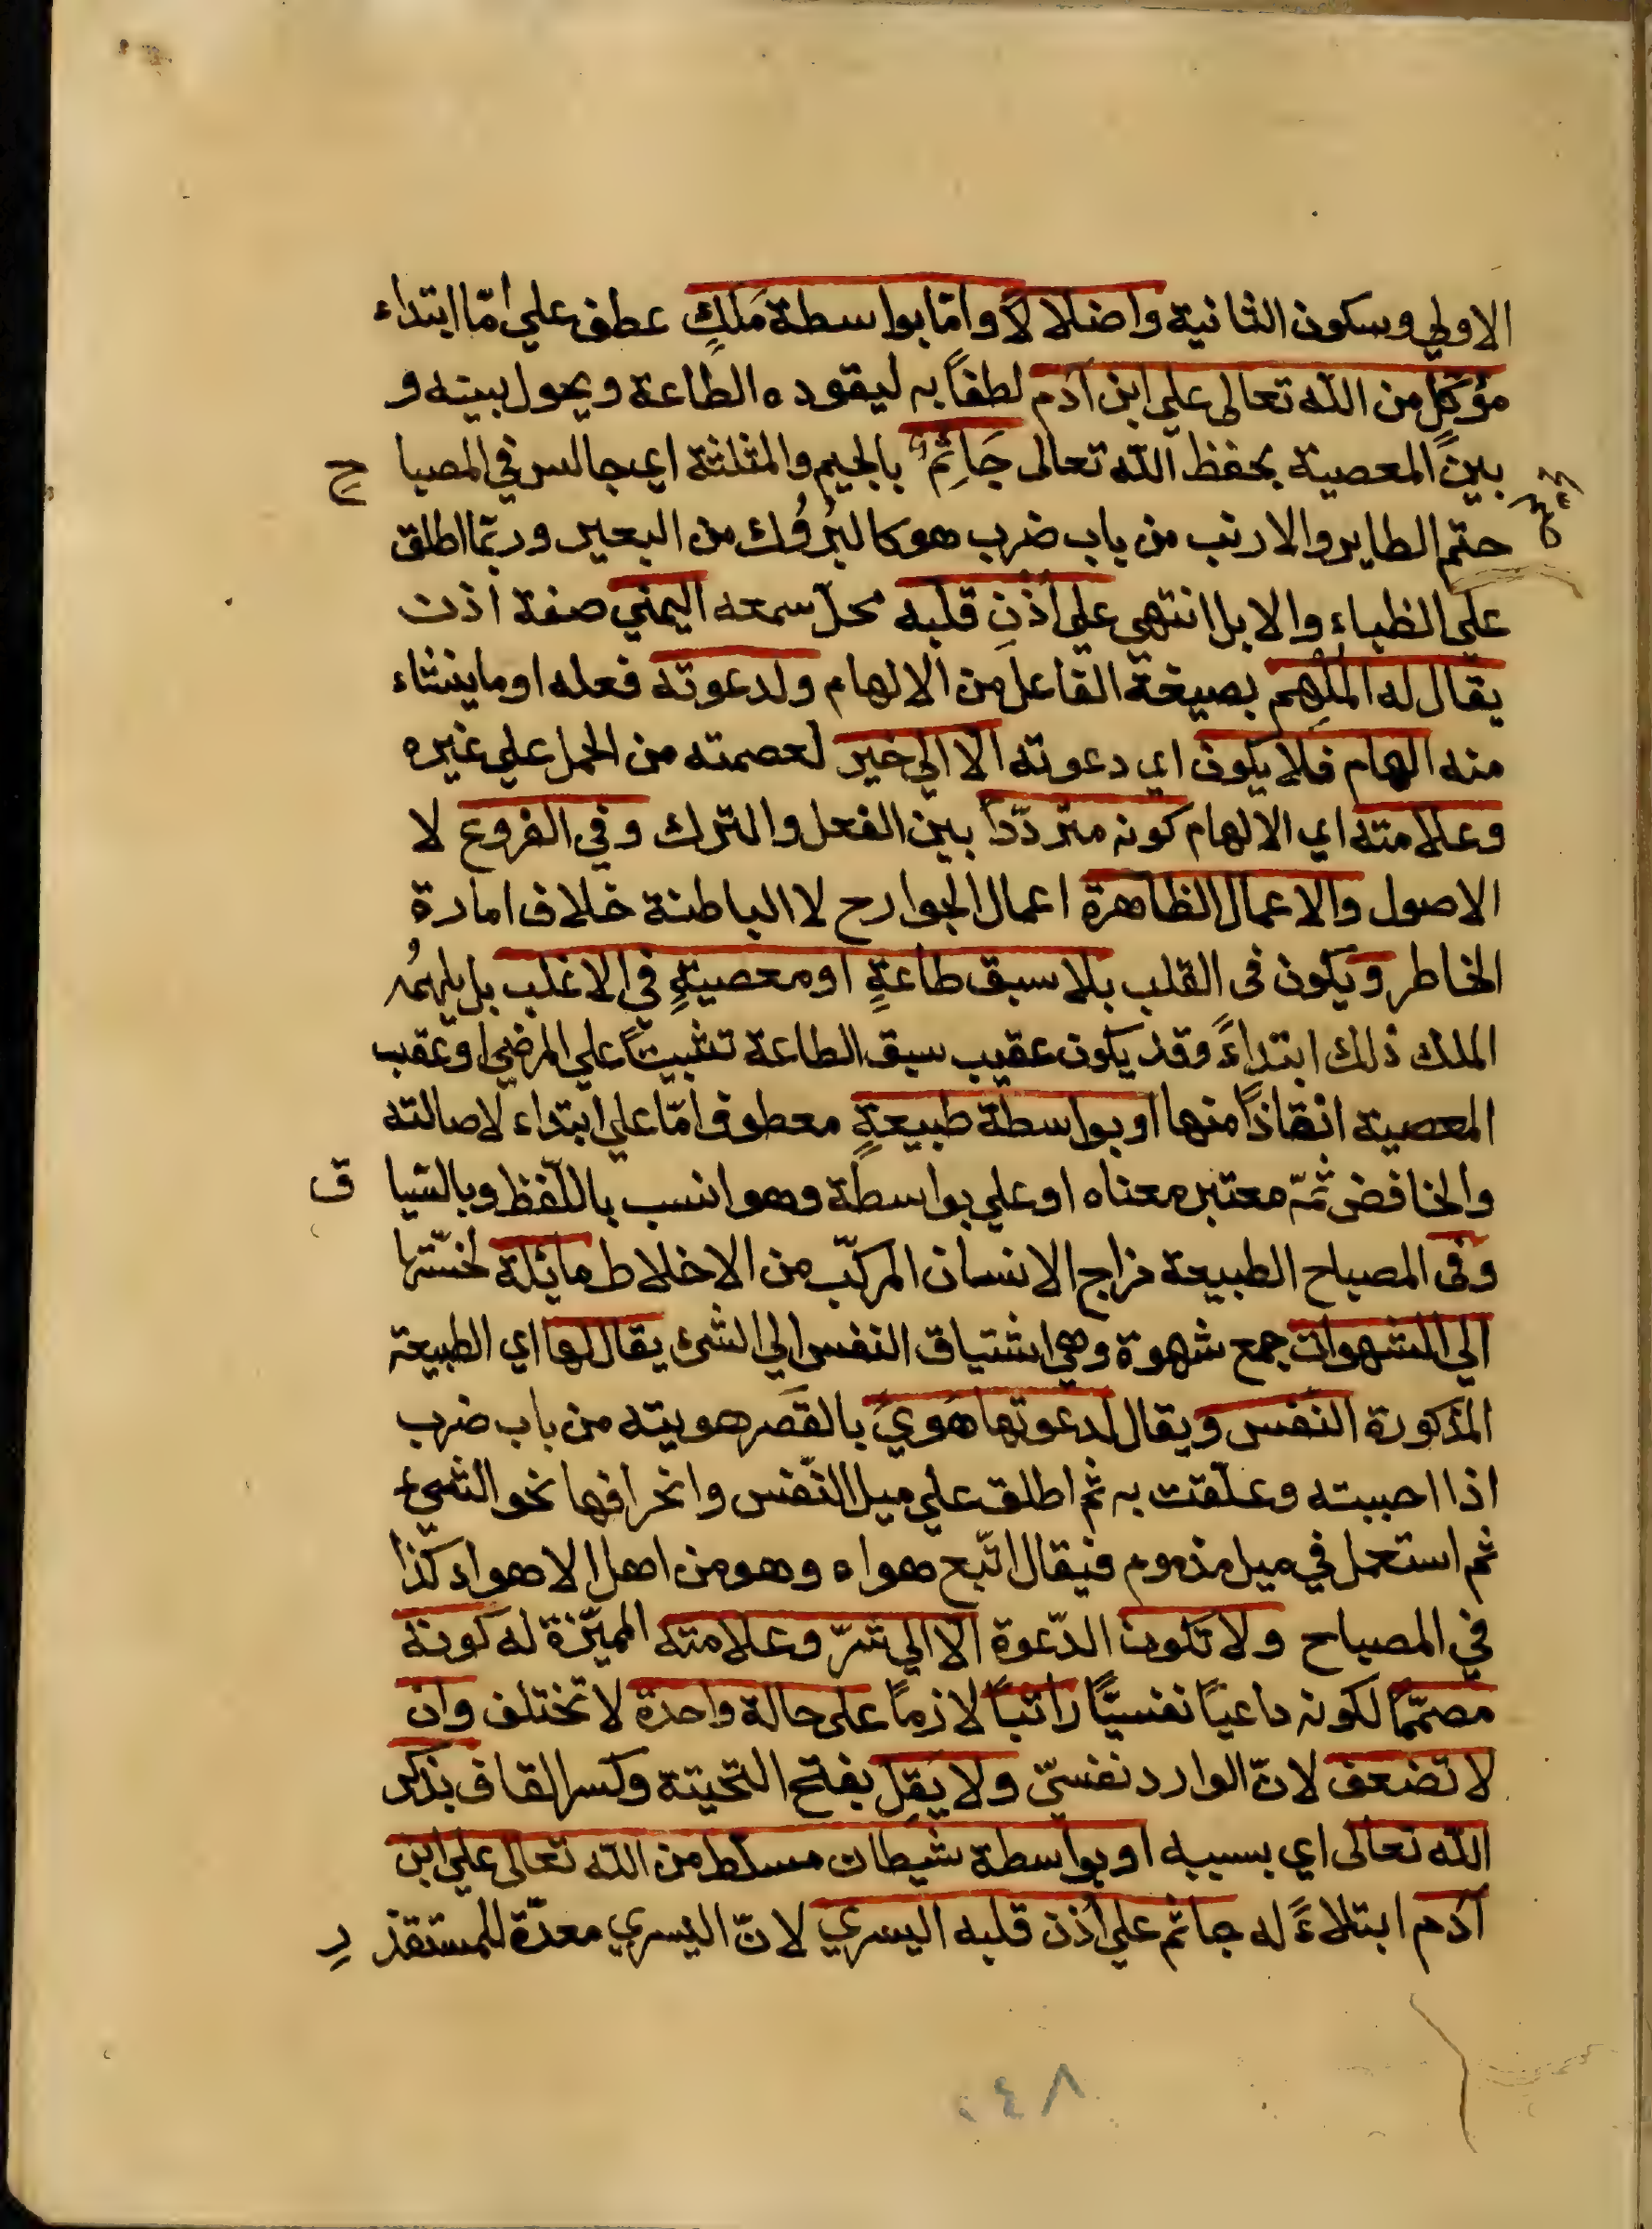 الاولي وسكون الثانية واضلالا لا وامّا بواسطة مَلَكٍ عطف علي امّا ابتداء
مؤكّلٍ من الله تعالى علي ابن آدم لطفاً به ليقوده الطاعة ويحول بينه و
بين المعصية بحفظ الله تعالى جَاثِمٌ بالجيم والمثلثة اي جالس في المصبا ح
جثم الطاير والارنب من باب ضرب هو كالبُرُوُك من البعير وربّما اطلق
علي الظباء والابل انتهي علي اُذُنِ قلبه محلّ سمعه اليمني صفة اذن
يقال له المُلهِم بصيغة الفاعل من الالهام ولدعوته فعله او ما ينشاء
منه الهام فلا يكون اي دعوته الا الي خير لعصمته من الحمل علي غيره
وعلامته اي الالهام كونه متردّداً بين الفعل والترك وفي الفروع لا
الاصول والاعمال الظاهرة اعمال الجوارح لا الباطنة خلاف امارة
الخاطر ويكون فى القلب بلا سبق طاعةٍ او معصيةٍ في الاغلب بل يلهمُه
الملك ذلك ابتداءً وقد يكون عقيب سبق الطاعة تثبيتاً علي المرضي او عقب
المعصية انقاذاً منها او بواسطة طبيعةٍ معطوف امّا علي ابتداء لاصالته
والخافض ثمّة معتبر معناه او علي بواسطة وهو انسب باللّفظ وبالسّيا ق
وفى المصباح الطبيعة مزاج الانسان المركّب من الاخلاط مائلة لخسّتها
الي الشهوات جمع شهوة وهي اشتياق النفس الي الشئ يقال لها اي الطبيعة
المذكورة النفس ويقال لدعوتها هَويً بالقَصر هويته من باب ضرب
اذا احببته وعلّقت به ثم اطلق علي ميل النّفس وانحرافها نحو الشئء
ثم استعمل في ميل مذموم فيقال اتّبع هواه وهو من اهل الاهواء كذا
في المصباح ولا تكون الدّعوة الا الي شرّ وعلامته المميّزة له كونه
مصمّماً لكونه داعياً نفسيًّا راتباً لازماً على حالة واحدة لا تختلف وان
لا تضعف لانّ الوارد نفسيّ ولا يَقِلّ بفتح التحيتة وكسر القاف بذكر
الله تعالى اي بسببه او بواسطة شيطان مسلط من الله تعالى علي ابن
آدم ابتلاءً له جاثم علي اُذن قلبه اليسري لانّ اليسري معدّة للمستقذ ر
٠٤٨